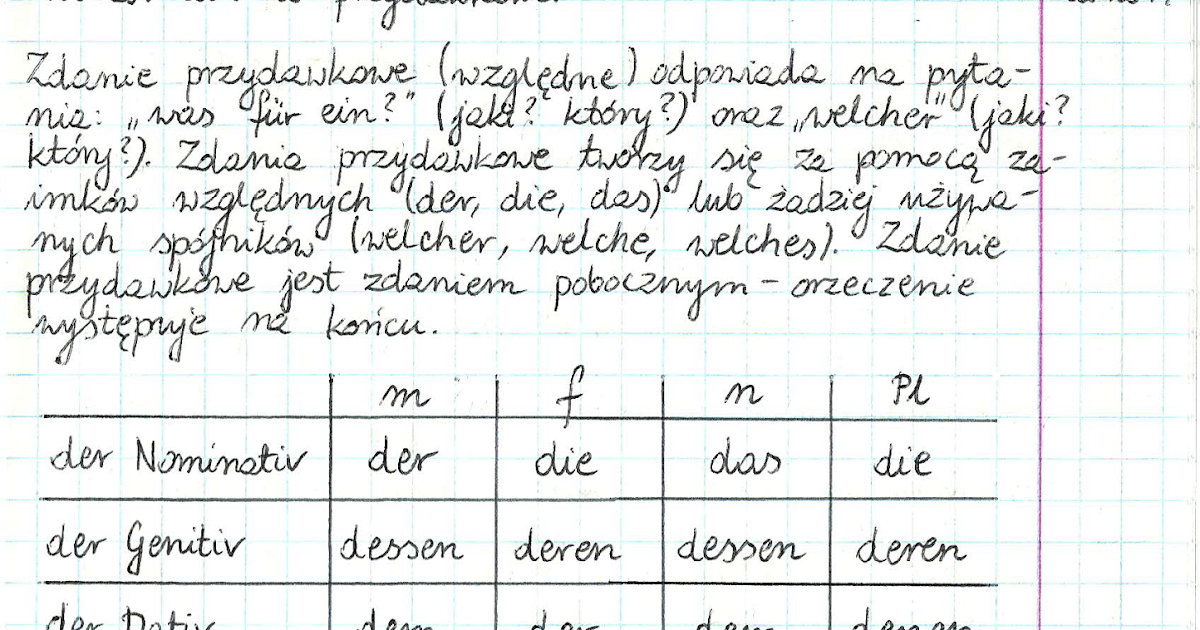 Zdanie przydawkowe (względne) odpowiada na pyta-
nia: „was für ein?” (jaki? który?) oraz „welcher” (jaki?
który?). Zdania przydawkowe tworzy się za pomocą za-
imków względnych (der, die, das) lub żadziej używa-
nych spójników (welcher, welche, welches). Zdanie
przydawkowe jest zdaniem pobocznym – orzeczenie
występuje na końcu.
m f n Pl
der Nominativ der die das die
der Genitiv dessen deren dessen deren
der Dativ dem der dem denen